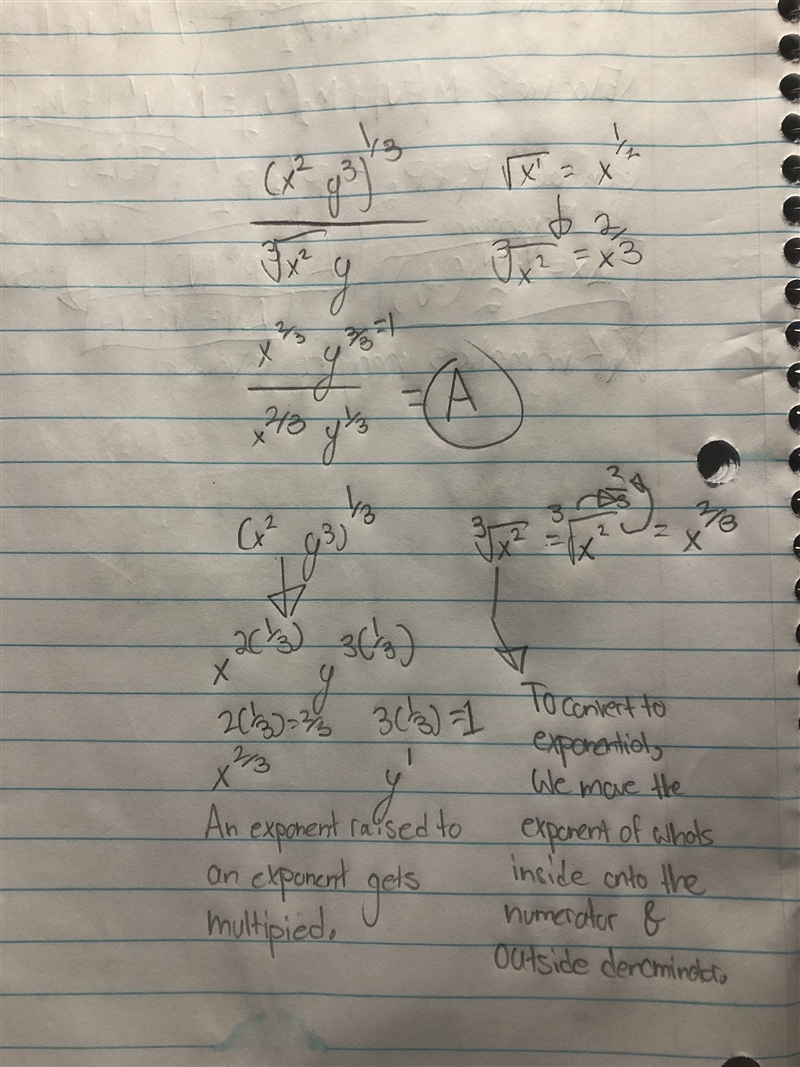 (x² y³)^1/3
√x¹ = x^1/2
∛x² y
∛x² = x^2/3
x^2/3 y^3/3=1
x^2/3 y^1/3
= A
(x² y³)^1/3
∛x² = ∛x² 2/3 = x^2/3
x^2(1/3) y^3(1/3)
2(1/3)=2/3 3(1/3)=1
x^2/3 y¹
An exponent raised to
an exponent gets
multipied.
To convert to
exponential,
We move the
exponent of whats
inside onto the
numerator &
outside denominator.